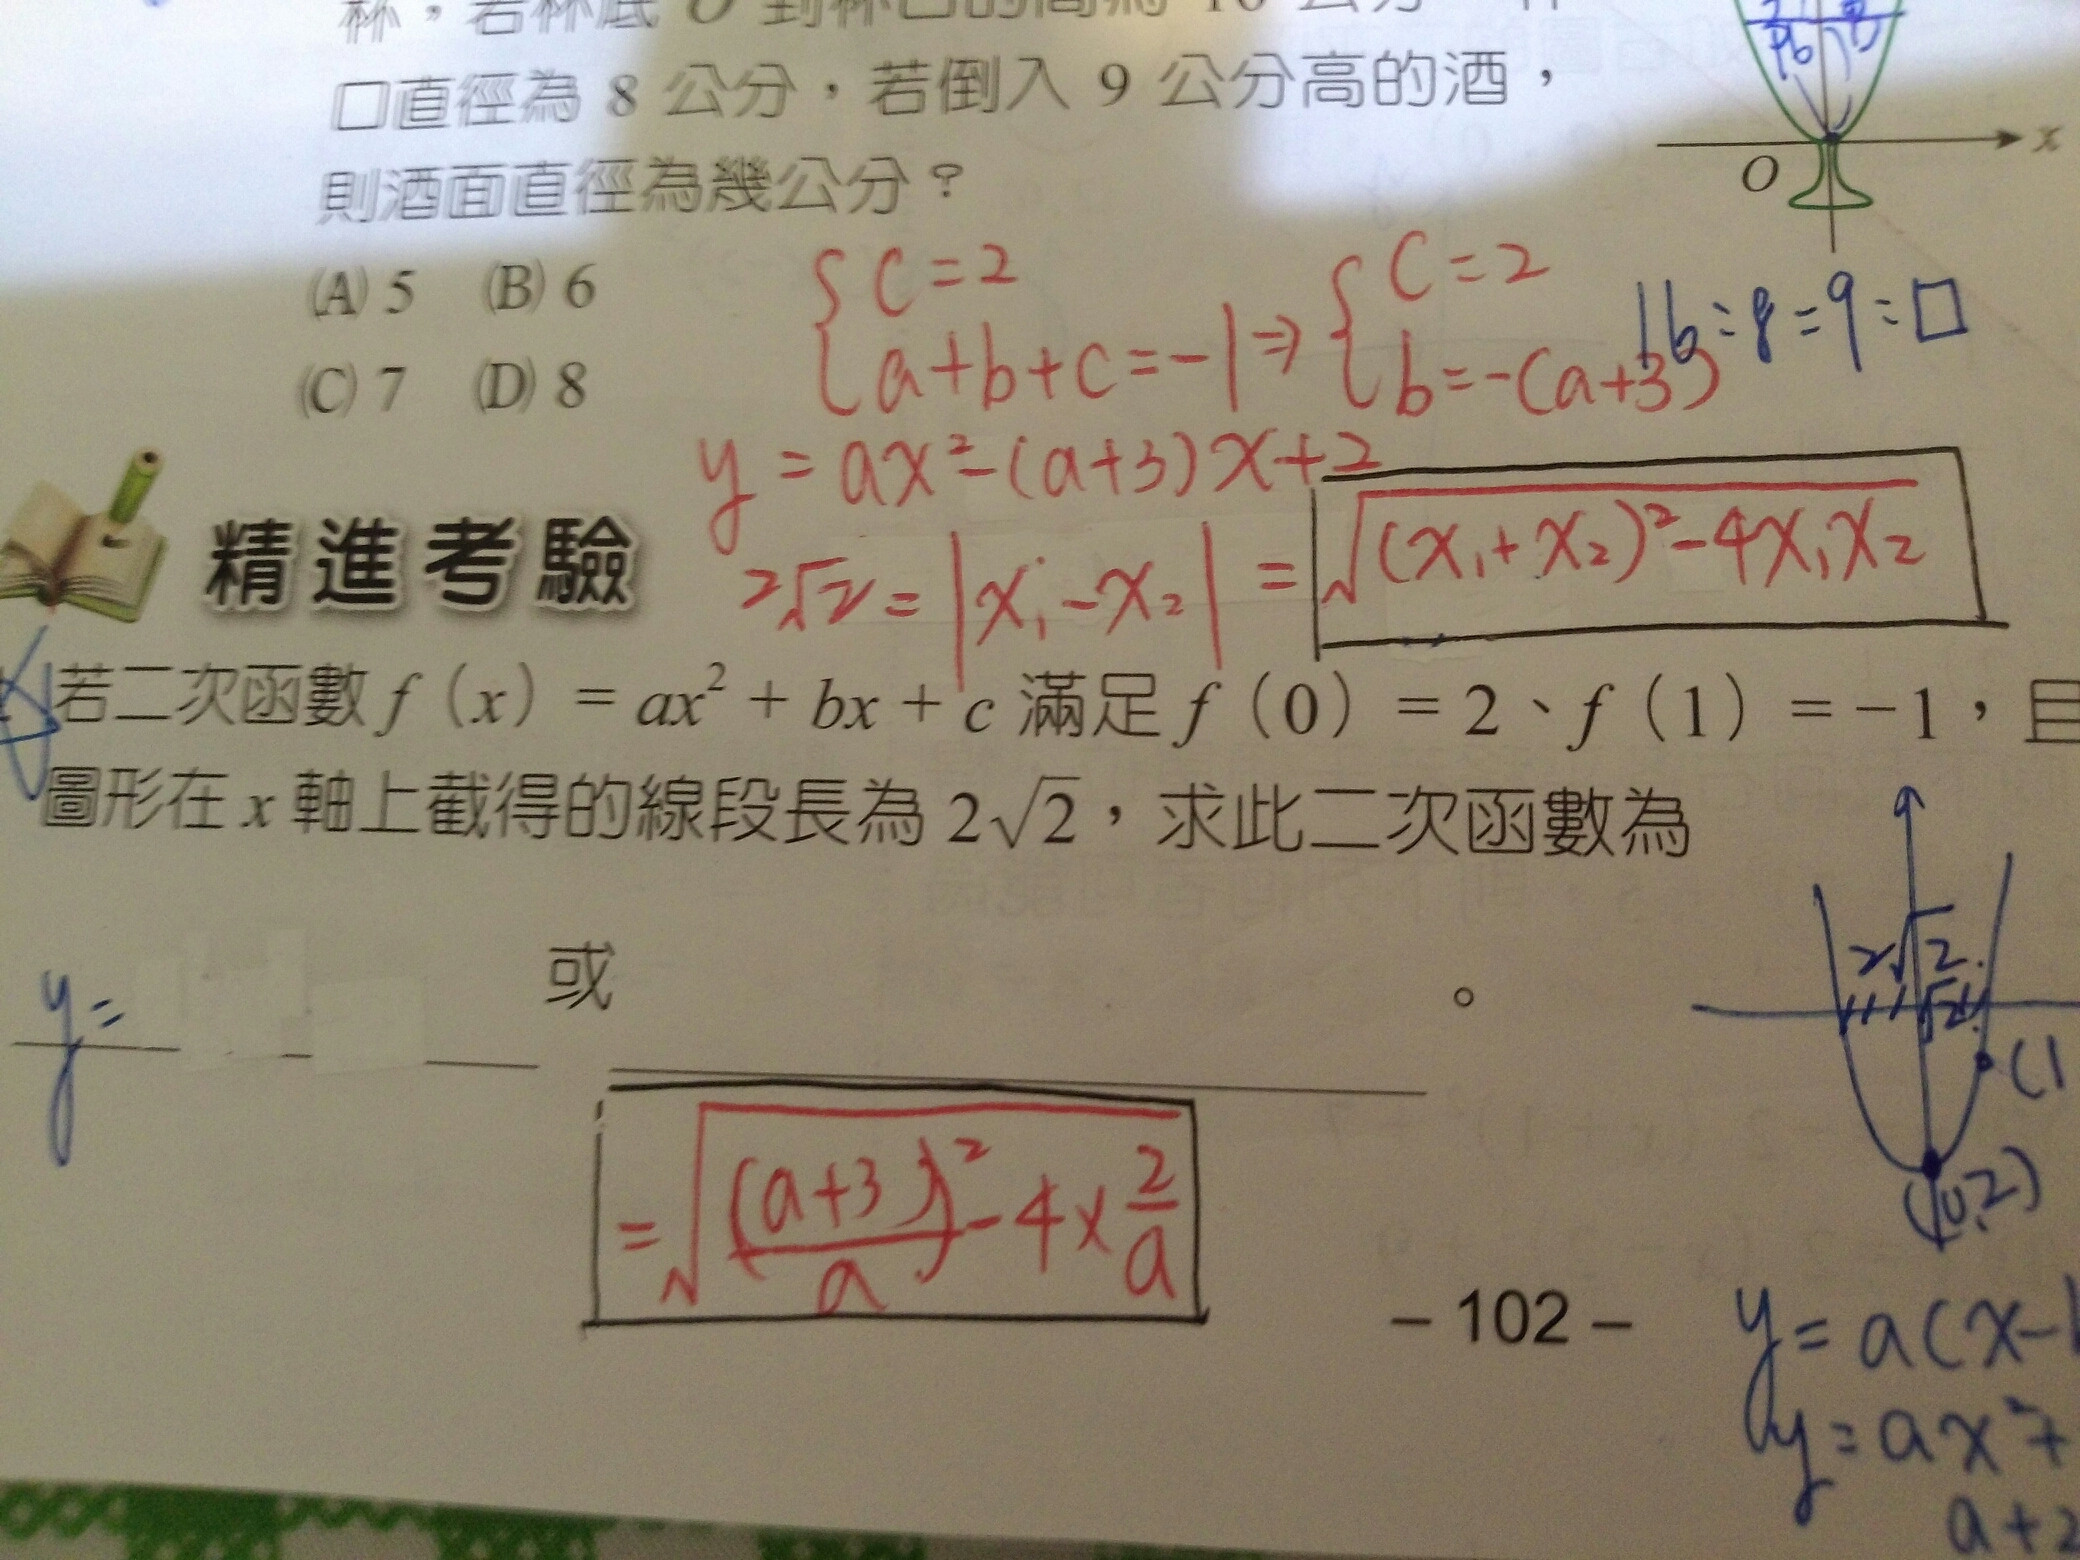 杯，若杯底 O 到杯口的高為 16 公分，杯
口直徑為 8 公分，若倒入 9 公分高的酒，
則酒面直徑為幾公分？
x
O
(A) 5 (B) 6
(C) 7 (D) 8
16:8=9:□
{c=2
a+b+c=-1 ⇒ {c=2
b=-(a+3)
y=ax²-(a+3)x+2
2√2=|x₁-x₂|=√(x₁+x₂)²-4x₁x₂
精進考驗
若二次函數 f（x）= ax² + bx + c 滿足 f（0）= 2、f（1）= -1，且
圖形在 x 軸上截得的線段長為 2√2，求此二次函數為
y= 或 。
2√2
√2
(1
(0,2)
=√((a+3)/a)²-4×2/a
– 102 –
y=a(x-
y=ax²+
a+2